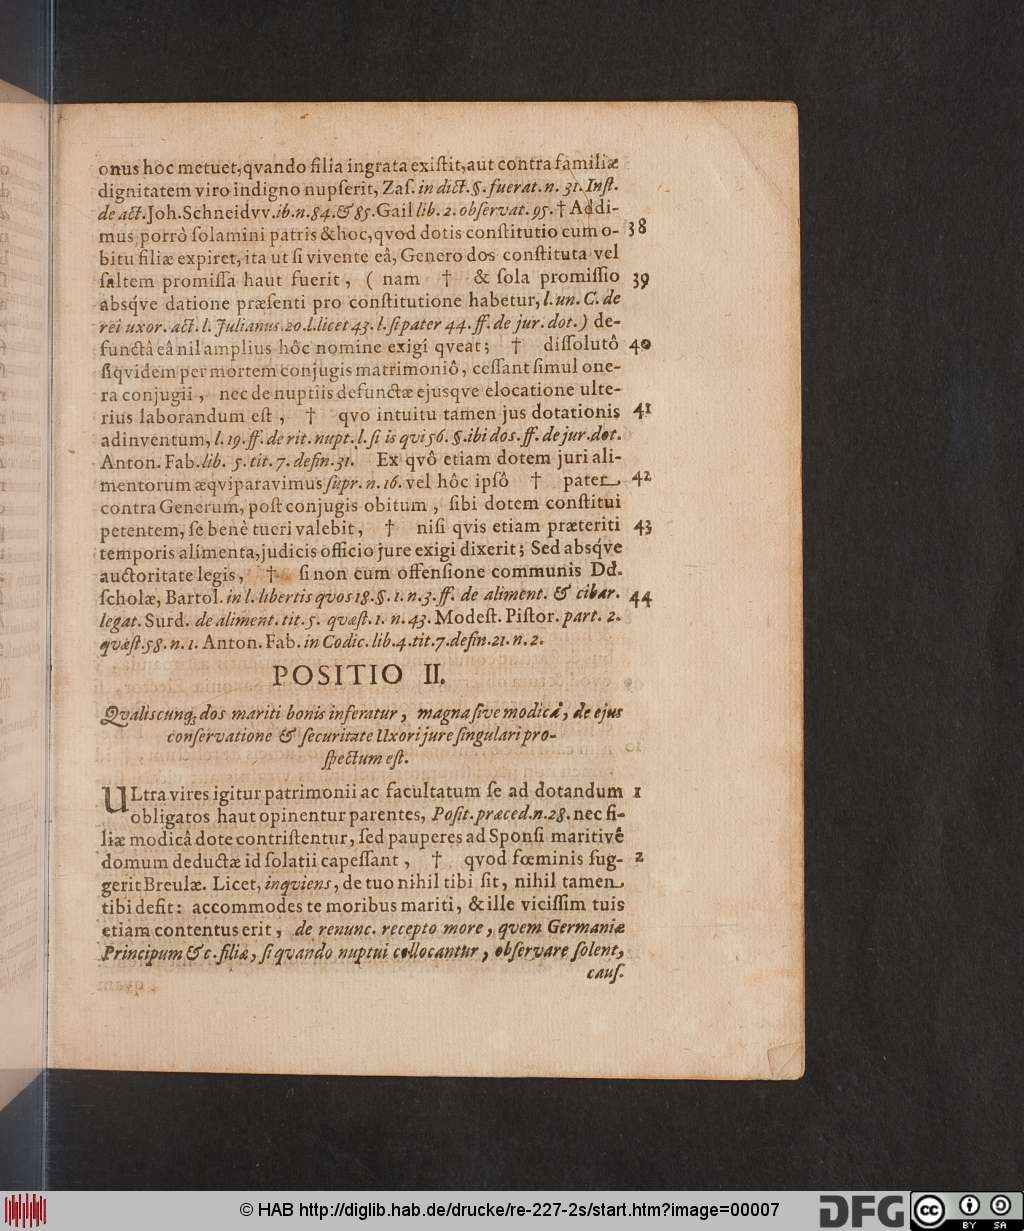 onus hoc metuet, qvando filia ingrata exiſtit, aut contra familiæ
dignitatem viro indigno nupſerit, Zaſ. in dict. §. fuerat. n. 31. Inſt.
de act. Joh. Schneidvv. ib. n. 84. & 85. Gail lib. 2. obſervat. 95. † Addi-
mus porrò ſolamini patris & hoc, qvod dotis conſtitutio cum o- 38
bitu filiæ expiret, ita ut ſi vivente eâ, Genero dos conſtituta vel
ſaltem promiſſa haut fuerit, ( nam † & ſola promiſſio 39
absq́ve datione præſenti pro conſtitutione habetur, l. un. C. de
rei uxor. act. l. Julianus. 20. l. licet 43. l. ſi pater 44. ff. de jur. dot. ) de-
functâ eâ nil amplius hôc nomine exigi qveat; † diſſolutô 40
ſiqvidem per mortem conjugis matrimoniô, ceſſant ſimul one-
ra conjugii, nec de nuptiis defunctæ ejusqve elocatione ulte-
rius laborandum eſt, † qvo intuitu tamen jus dotationis 41
adinventum, l. 19. ff. de rit. nupt. l. ſi is qui 56. §. ibi dos. ff. de jur. dot.
Anton. Fab. lib. 5. tit. 7. defin. 31. Ex qvô etiam dotem juri ali-
mentorum æqviparavimus ſupr. n. 16. vel hôc ipſô † pater 42
contra Generum, poſt conjugis obitum, ſibi dotem conſtitui
petentem, ſe benè tueri valebit, † niſi qvis etiam præteriti 43
temporis alimenta, judicis officio jure exigi dixerit; Sed absq́ve
auctoritate legis, † ſi non cum offenſione communis Dd.
ſcholæ, Bartol. in l. libertis quos 18. §. 1. n. 3. ff. de aliment. & cibar. 44
legat. Surd. de aliment. tit. 5. quæſt. 1. n. 43. Modeſt. Piſtor. part. 2.
quæſt. 58. n. 1. Anton. Fab. in Codic. lib. 4. tit. 7. defin. 21. n. 2.
POSITIO II.
Qvaliscunq; dos mariti bonis inferatur, magna ſive modica, de ejus
conſervatione & ſecuritate Uxori jure ſingulari pro-
ſpectum eſt.
ULtra vires igitur patrimonii ac facultatum ſe ad dotandum 1
obligatos haut opinentur parentes, Poſit. præced. n. 28. nec fi-
liæ modicâ dote contriſtentur, ſed pauperes ad Sponſi maritivè
domum deductæ id ſolatii capeſſant, † qvod fœminis ſug- 2
gerit Breulæ. Licet, inqviens, de tuo nihil tibi ſit, nihil tamen
tibi defit: accommodes te moribus mariti, & ille viciſſim tuis
etiam contentus erit, de renunc. recepto more, qvem Germaniæ
Principum & c. filiæ, ſi quando nuptui collocantur, obſervare ſolent,
cauſ.
© HAB http://diglib.hab.de/drucke/re-227-2s/start.htm?image=00007
DFG
cc
BY SA